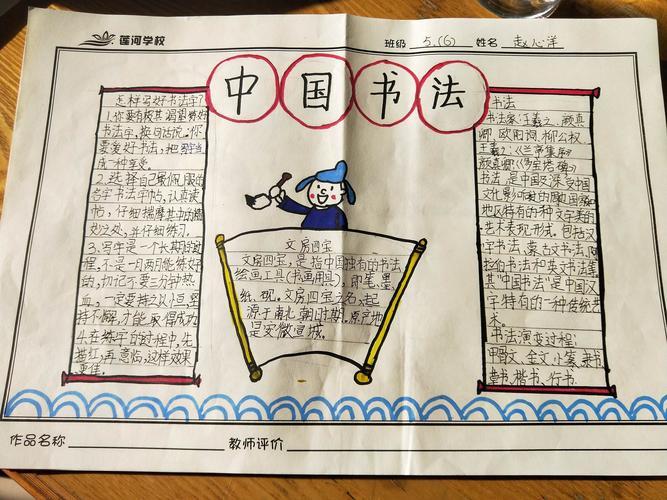 莲河学校
班级 5.(6) 姓名 赵心洋
中国书法
怎样写好书法字?
1.你要有极其渴望够好
书法字,换句话说:你
要爱好书法,把
成一种享受。
2.选择自己最佩服的
名字书法字帖,认真读
帖,仔细揣摩其中的精
妙之处,并仔细练习。
3.写字是一个长期的过
程,不是一月两月能练好
的,切记不要三分钟热
血,一定要持之以恒,坚
持不解,才能取得成功
4.在练字的过程中,先
描红,再意临,这样效果
更佳。
文房四宝
文房四宝,是指中国独有的书法
绘画工具(书画用具),即笔、墨、
纸、砚。文房四宝之名,起
源于南北朝时期。原产地
是安徽宣城。
书法
书法家:王羲之、颜真
卿、欧阳询、柳公权
王羲之:《兰亭集序》
颜真卿:《多宝塔碑》
书法,是中国及深受中国
文化影响的周围国家和
地区特有的一种文字美的
艺术表现形式。包括汉
字书法、蒙古文书法、阿
拉伯书法和英文书法等
其“中国书法”是中国汉
字特有的一种传统艺
术。
书法演变过程:
甲骨文、金文、小篆、隶书、
草书、楷书、行书。
作品名称
教师评价